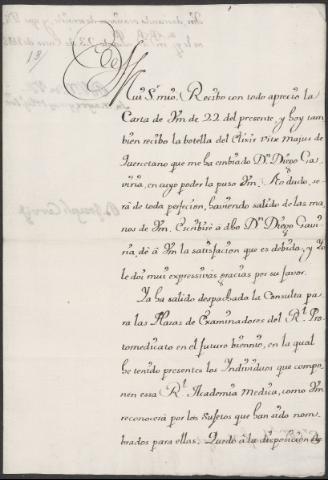 13/
Mui S.r mio. Recibo con todo aprecio la
Carta de Vm de 22 del presente, y hoy tam
bien recibo la botella del Elixir vitæ majus de
Quercetano que me ha embiado D.n Diego Ga
viria, en cuyo poder la puso Vm. No dudo, se
rá de toda perfecion, haviendo salido de las ma
nos de Vm. Escribiré a dho D.n Diego Gavi
ria, dé a Vm la satisfacion que es debida, y Yo
le doi muy expressivas gracias por su favor.
Ya ha salido despachada la Consulta pa
ra las Plazas de Examinadores del R.l Pro
tomedicato en el futuro biennio, en la qual
he tenido presentes los Individuos que compo
nen essa R.l Academia Medica, como Vm
reconocerá por los sujetos que han sido nom
brados para ellas. Quedo á la disposicion de